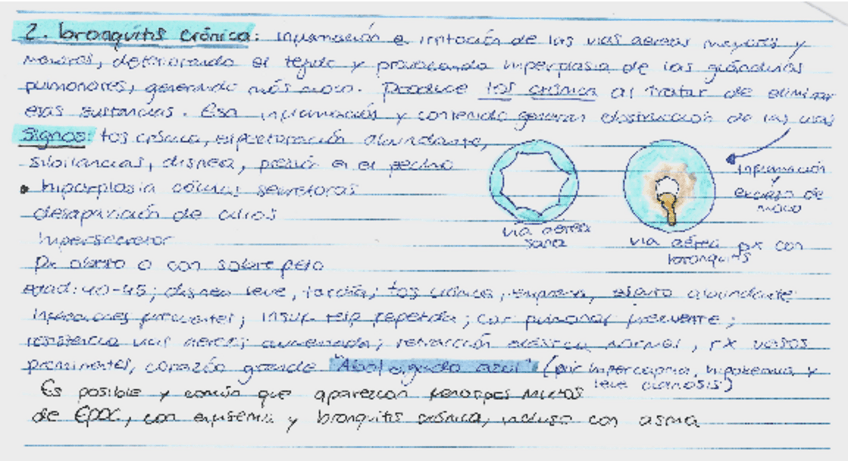 2. bronquitis crónica: inflamación e irritación de las vías aereas mayores y
menores, deteriorando el tejido y provocando hiperplasia de las glándulas
pulmonares, generando más moco. Produce tos crónica al tratar de eliminar
esas sustancias. Esa inflamación y contenido generan obstrucción de las vías
Signos: tos crónica, expectoración abundante,
sibilancias, disnea, presión en el pecho
• hiperplasia células secretoras
desaparición de cilios
hipersecretor
vía aérea sana
vía aérea px con bronquitis
inflamación y exceso de moco
Px obeso o con sobrepeso
edad: 40-45; disnea leve, tardía; tos crónica, temprana, esputo abundante
infecciones frecuentes; insuf resp repetida; cor pulmonar frecuente;
resistencia vías aereas aumentada; retracción elástica normal, rx vasos
prominentes, corazón grande "Abotagado azul" (por hipercapnia, hipoxemia y
leve cianosis)
Es posible y común que aparezcan fenotipos mixtos
de EPOC, con enfisema y bronquitis crónica, incluso con asma